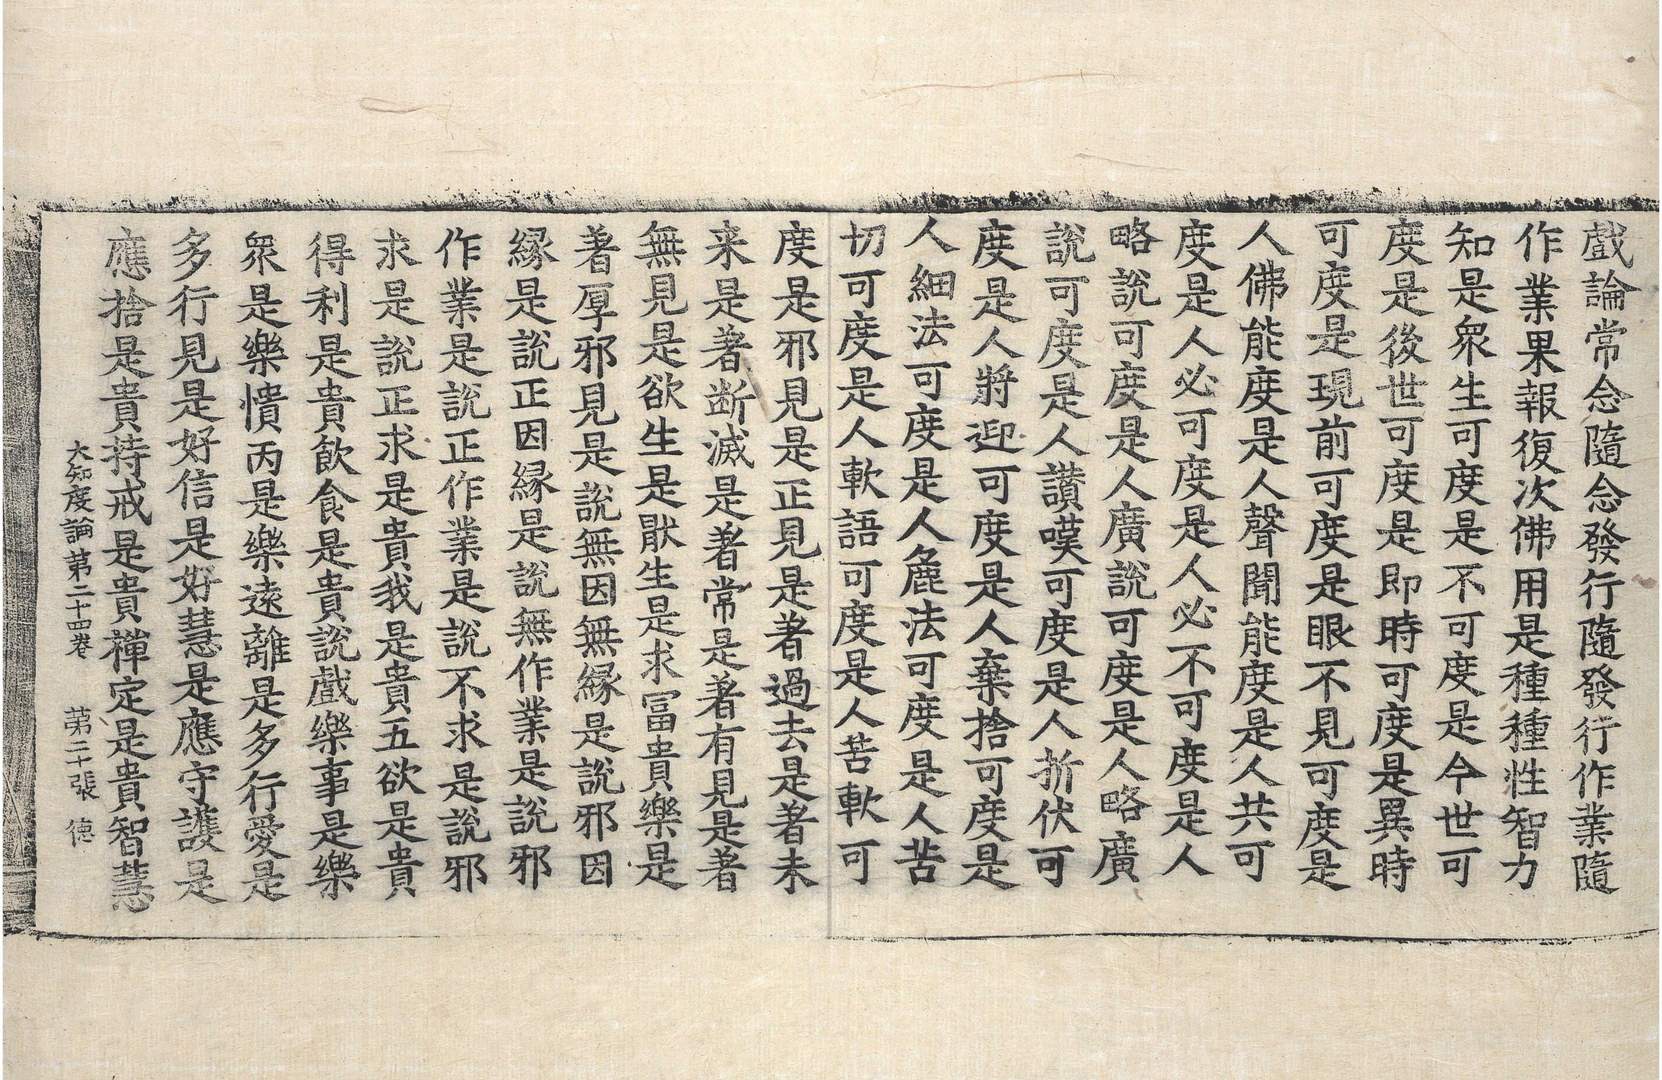 戲論常念隨念發行隨發行作業隨
作業果報復次佛用是種種性智力
知是衆生可度是不可度是今世可
度是後世可度是即時可度是異時
可度是現前可度是眼不見可度是
人佛能度是人聲聞能度是人共可
度是人必可度是人必不可度是人
略說可度是人廣說可度是人略廣
說可度是人讃嘆可度是人折伏可
度是人將迎可度是人棄捨可度是
人細法可度是人麁法可度是人苦
切可度是人軟語可度是人苦軟可
度是邪見是正見是著過去是著未
来是著断滅是著常是著有見是著
無見是欲生是猒生是求冨貴樂是
著厚邪見是說無因無縁是說邪因
縁是說正因縁是說無作業是說邪
作業是說正作業是說不求是說邪
求是說正求是貴我是貴五欲是貴
得利是貴飲食是貴說戲樂事是樂
衆是樂憒丙是樂遠離是多行愛是
多行見是好信是好慧是應守護是
應捨是貴持戒是貴禪定是貴智慧
大知度論第二十四卷 第二十張 徳